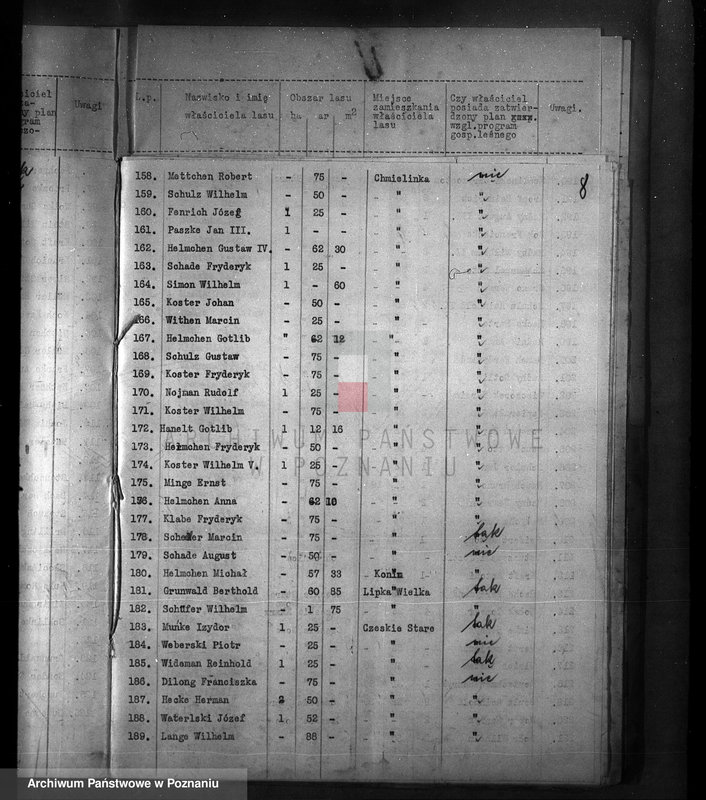 Uwagi
L.p. Nazwisko i imię właściciela lasu Obszar lasu ha ar m2 Miejsce zamieszkania właściciela lasu Czy właściciel posiada zatwierdzony plan wzgl.program gosp.leśnego Uwagi.
8
158. Mettchen Robert - 75 - Chmielinka nie
159. Schulz Wilhelm - 50 - " "
160. Fenrich Józef 1 25 - " "
161. Paszke Jan III. 1 - - " "
162. Helmchen Gustaw IV. - 62 30 " "
163. Schade Fryderyk 1 25 - " "
164. Simon Wilhelm 1 - 60 " "
165. Koster Johan - 50 - " "
166. Withen Marcin - 25 - " "
167. Helmchen Gotlib " 62 12 " "
168. Schulz Gustaw - 75 - " "
169. Koster Fryderyk - 75 - " "
170. Nojman Rudolf 1 25 - " "
171. Koster Wilhelm - 75 - " "
172. Hanelt Gotlib 1 12 16 " "
173. Helmchen Fryderyk - 50 - " "
174. Koster Wilhelm V. 1 25 - " "
175. Minge Ernst - 75 - " "
196. Helmchen Anna - 62 10 " "
177. Klabe Fryderyk - 75 - " "
178. Marcin - 75 - " tak
179. Schade August - 50 - " nie
180. Helmchen Michał - 57 33 Konin "
181. Grunwald Berthold - 60 85 Lipka Wielka tak
182. Schüfer Wilhelm - 1 75 " "
183. Munke Izydor 1 25 - Czeskie Stare tak
184. Weberski Piotr - 25 - " nie
185. Wideman Reinhold 1 25 - " tak
186. Dilong Franciszka - 75 - " nie
187. Hecke Herman 2 50 - " "
188. Waterlski Józef 1 52 - " "
189. Lange Wilhelm - 88 - " "
ARCHIWUM PAŃSTWOWE
W POZNANIU
Archiwum Państwowe w Poznaniu